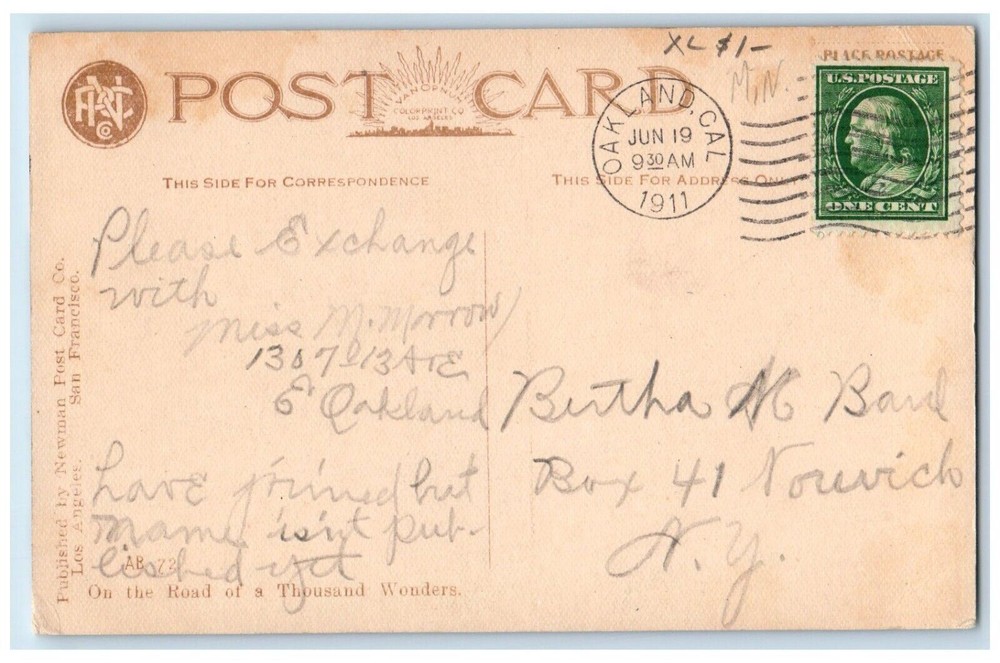 XL $1-
M.N.
PLACE POSTAGE
POST CARD
VANOPNO
COLORPRINT CO
LOS ANGELES
U.S. POSTAGE
ONE CENT
OAKLAND, CAL
JUN 19
9 30 AM
1911
THIS SIDE FOR CORRESPONDENCE
THIS SIDE FOR ADDRESS ONLY
Please Exchange
with
Miss M. Morrow
1307-13 AVE
E Oakland
have joined but
name isn't pub-
lished yet
Bertha M
Box 41 Norwich
N.Y.
AB 72
On the Road of a Thousand Wonders.
Published by Newman Post Card Co.
Los Angeles. San Francisco.